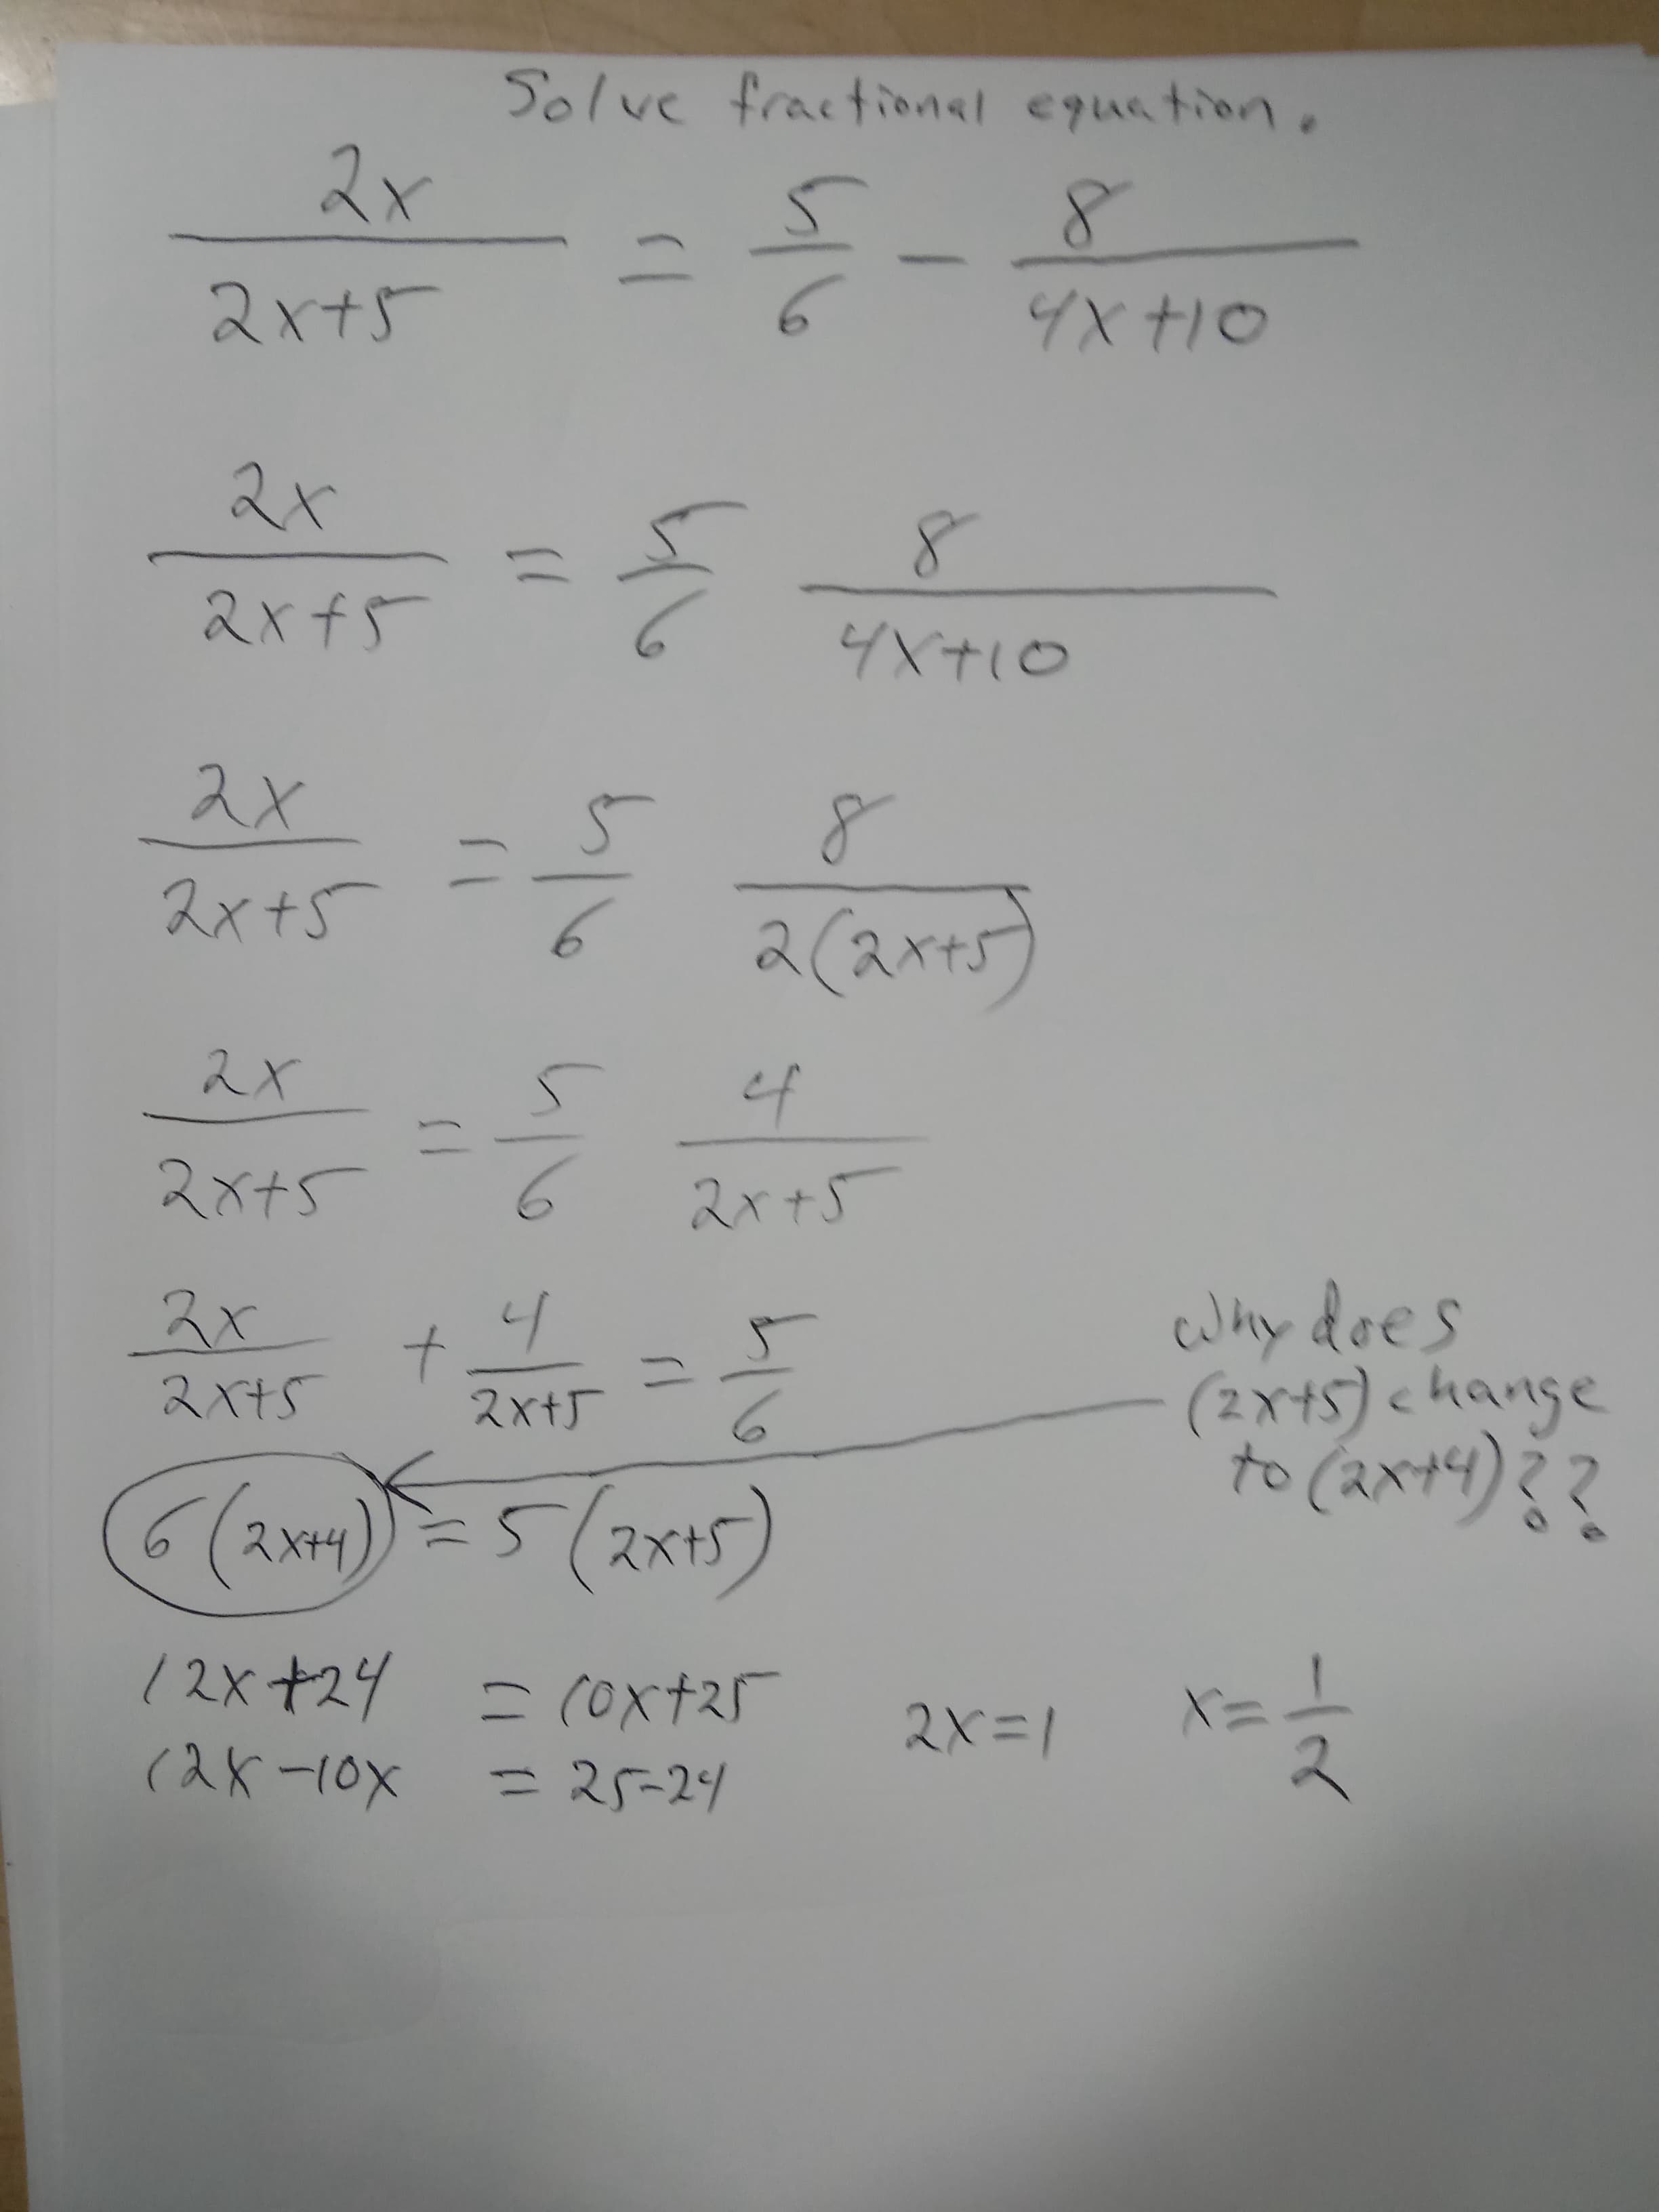 Solve fractional equation.
2x/(2x+5) = 5/6 - 8/(4x+10)
2x/(2x+5) = 5/6 8/(4x+10)
2x/(2x+5) = 5/6 8/(2(2x+5))
2x/(2x+5) = 5/6 4/(2x+5)
2x/(2x+5) + 4/(2x+5) = 5/6
Why does
(2x+5) change
to (2x+4)??
6(2x+4) = 5(2x+5)
12x+24 = 10x+25 2x=1 x=1/2
12x-10x = 25-24